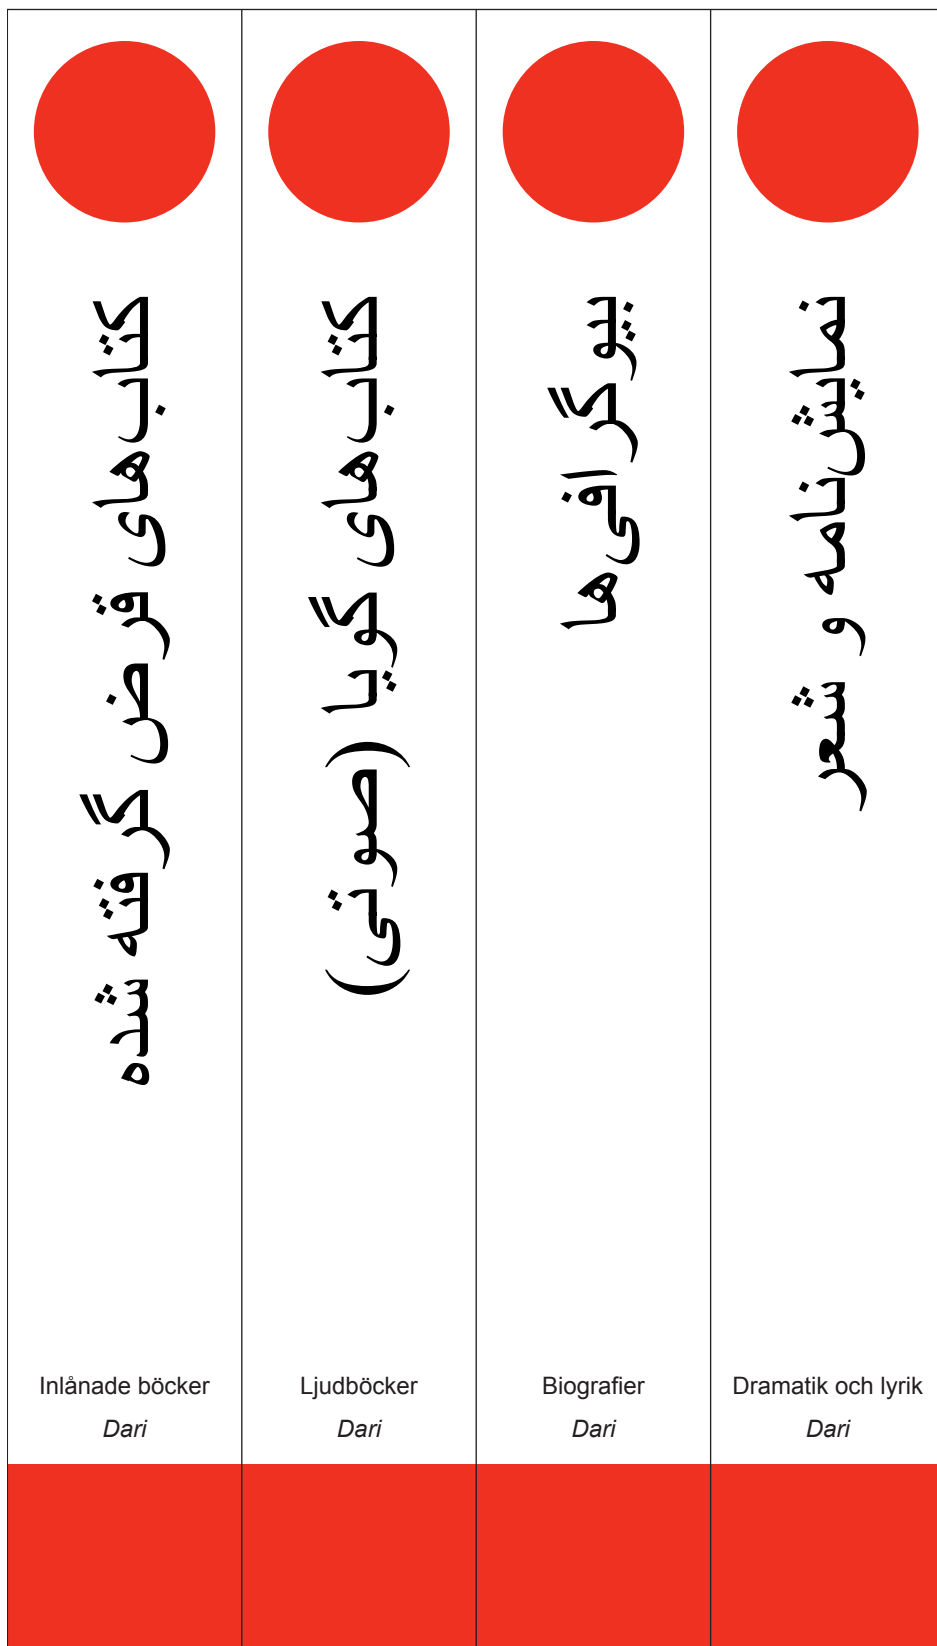 کتاب‌های قرض گرفته شده
Inlånade böcker
Dari
کتاب‌های گویا (صوتی)
Ljudböcker
Dari
بیوگرافی‌ها
Biografier
Dari
نمایش‌نامه و شعر
Dramatik och lyrik
Dari